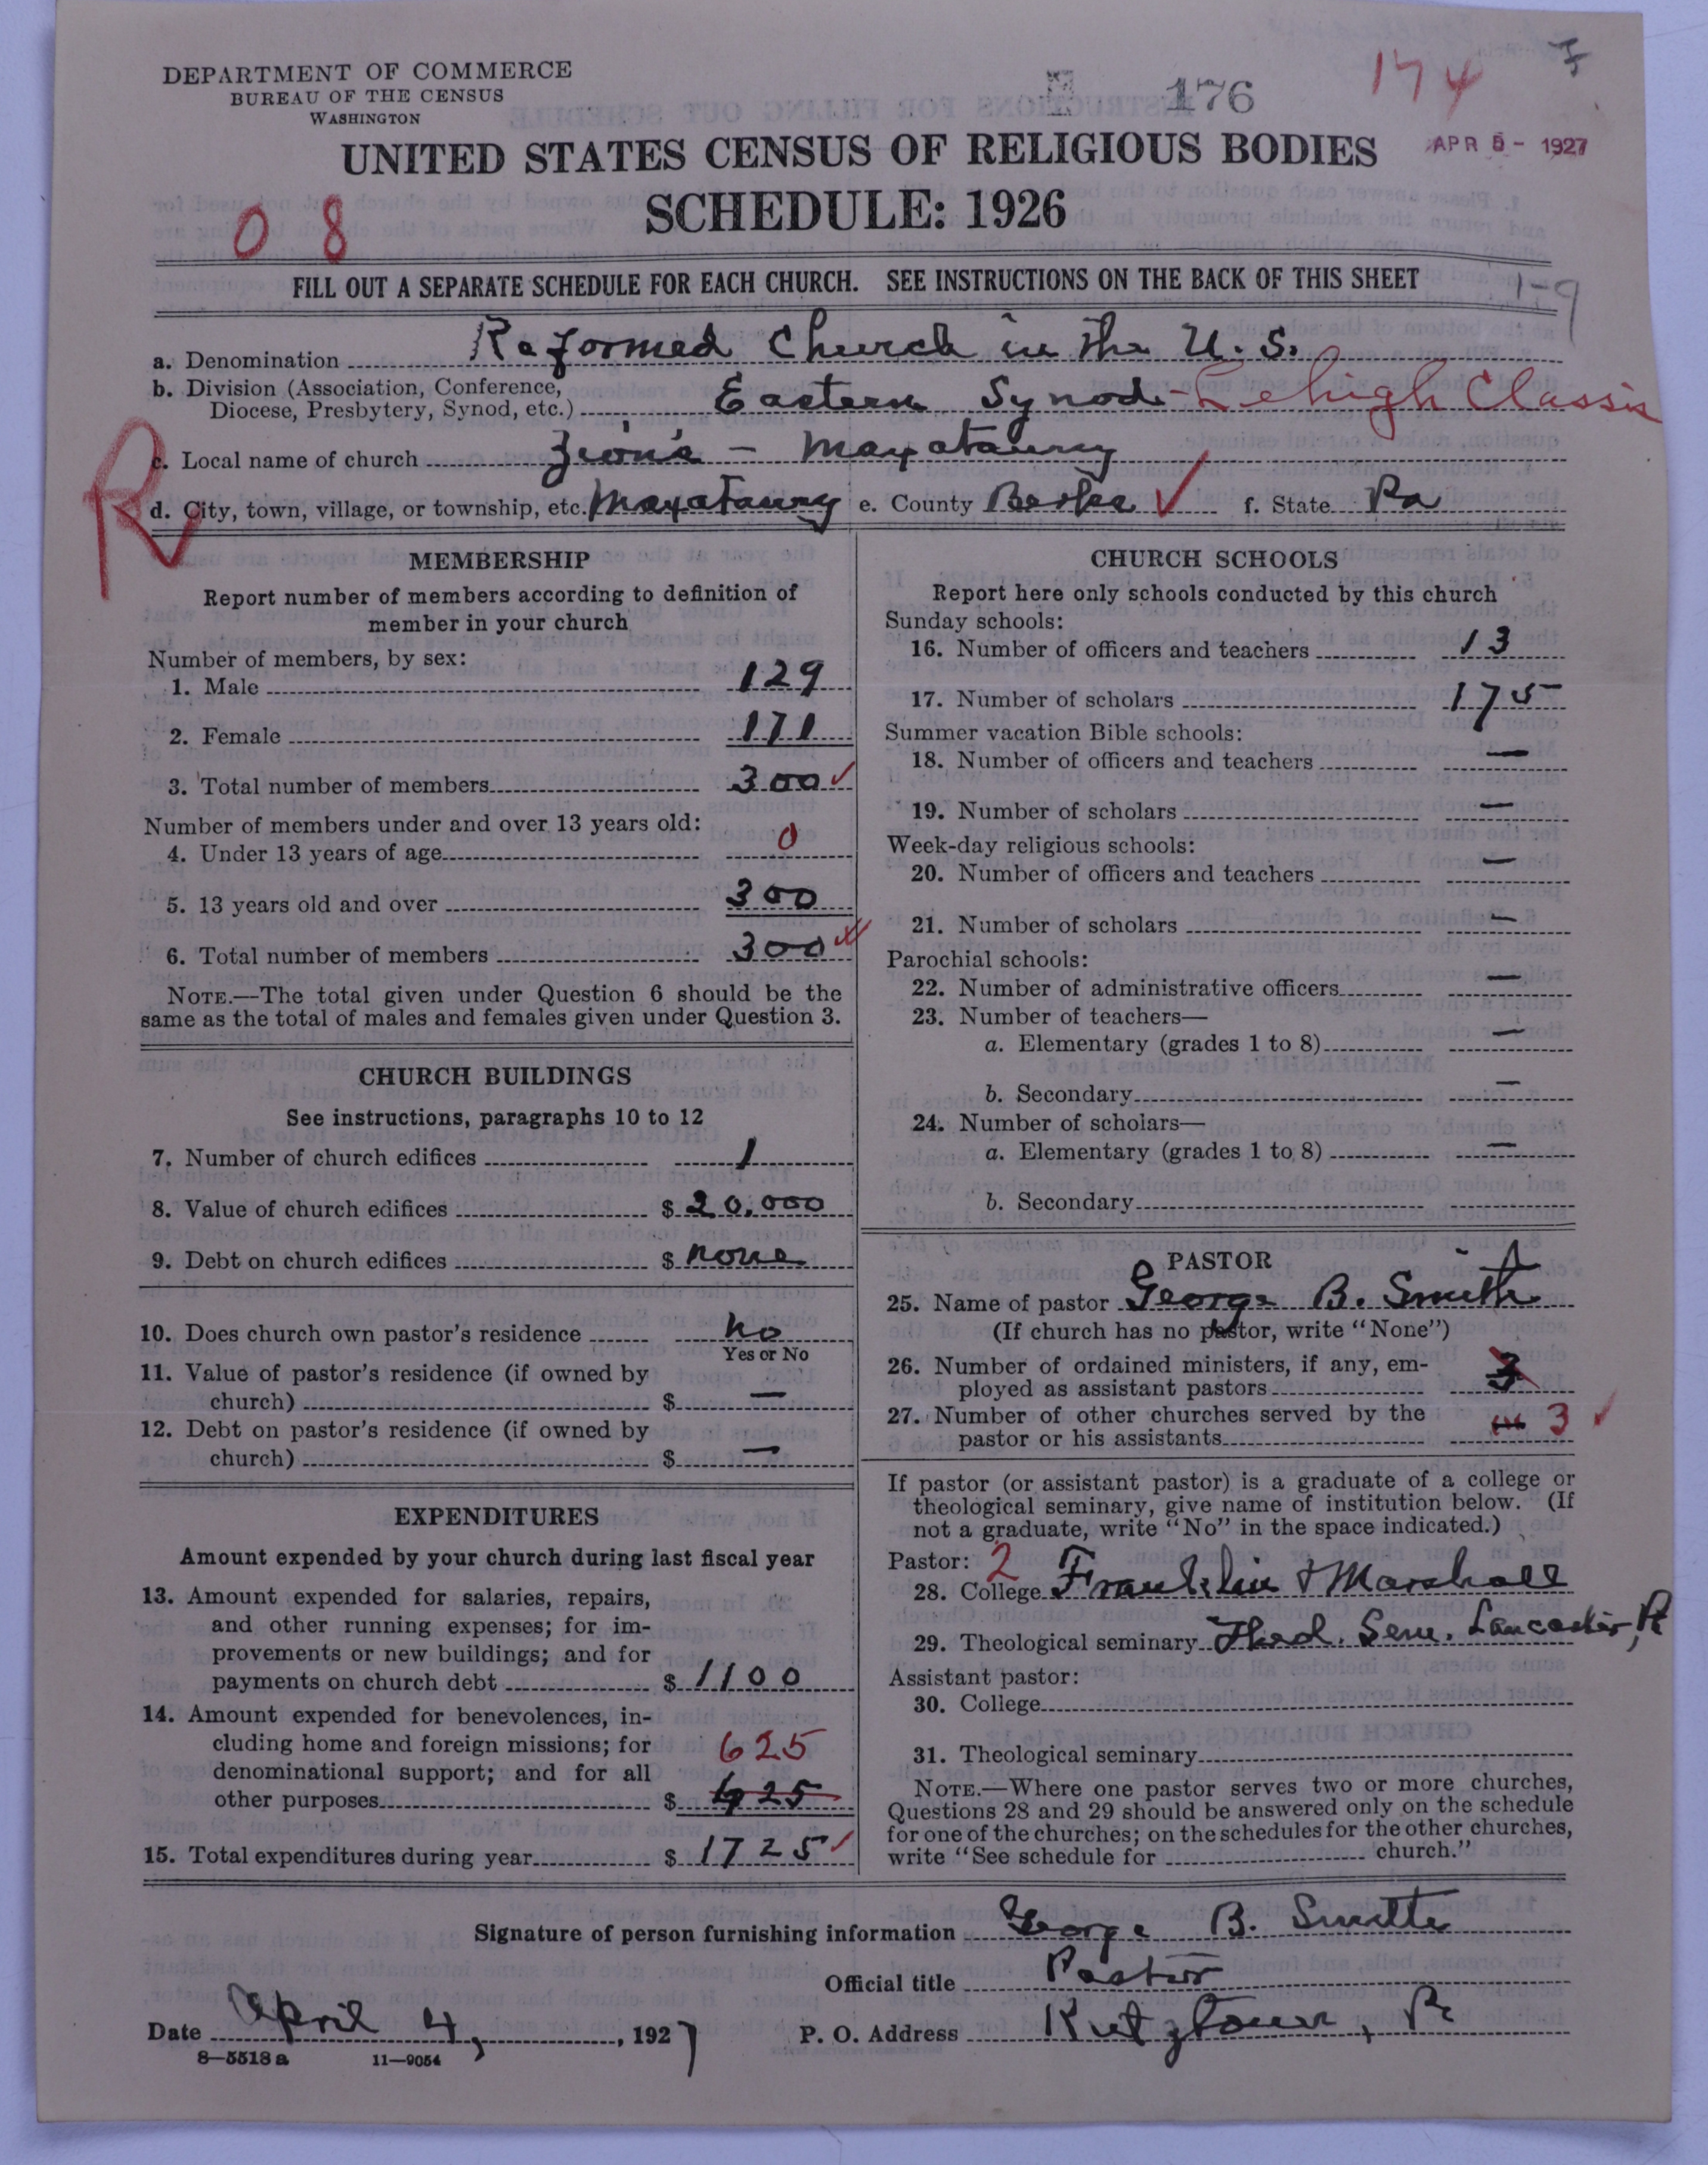 DEPARTMENT OF COMMERCE
BUREAU OF THE CENSUS
WASHINGTON
176
174
UNITED STATES CENSUS OF RELIGIOUS BODIES
APR 5 - 1927
SCHEDULE: 1926
0 8
FILL OUT A SEPARATE SCHEDULE FOR EACH CHURCH. SEE INSTRUCTIONS ON THE BACK OF THIS SHEET
1-9
a. Denomination Reformed Church in the U.S.
b. Division (Association, Conference,
Diocese, Presbytery, Synod, etc.) Eastern Synod - Lehigh Classis
R
c. Local name of church Zion's - Maxatawny
d. City, town, village, or township, etc. Maxatawny e. County Berks ✓ f. State Pa
MEMBERSHIP
Report number of members according to definition of
member in your church
Number of members, by sex:
1. Male 129
2. Female 171
3. Total number of members 300 ✓
Number of members under and over 13 years old:
4. Under 13 years of age 0
5. 13 years old and over 300
6. Total number of members 300
NOTE.—The total given under Question 6 should be the
same as the total of males and females given under Question 3.
CHURCH BUILDINGS
See instructions, paragraphs 10 to 12
7. Number of church edifices 1
8. Value of church edifices $ 20,000
9. Debt on church edifices $ none
10. Does church own pastor's residence no
Yes or No
11. Value of pastor's residence (if owned by
church) $ —
12. Debt on pastor's residence (if owned by
church) $ —
EXPENDITURES
Amount expended by your church during last fiscal year
13. Amount expended for salaries, repairs,
and other running expenses; for im-
provements or new buildings; and for
payments on church debt $ 1100
14. Amount expended for benevolences, in-
cluding home and foreign missions; for 625
denominational support; and for all
other purposes $ 625
15. Total expenditures during year $ 1725 ✓
CHURCH SCHOOLS
Report here only schools conducted by this church
Sunday schools:
16. Number of officers and teachers 13
17. Number of scholars 175
Summer vacation Bible schools:
18. Number of officers and teachers —
19. Number of scholars —
Week-day religious schools:
20. Number of officers and teachers —
21. Number of scholars —
Parochial schools:
22. Number of administrative officers —
23. Number of teachers—
a. Elementary (grades 1 to 8) —
b. Secondary —
24. Number of scholars—
a. Elementary (grades 1 to 8) —
b. Secondary
PASTOR
25. Name of pastor George B. Smith
(If church has no pastor, write "None")
26. Number of ordained ministers, if any, em-
ployed as assistant pastors 3
27. Number of other churches served by the
pastor or his assistants 3 ✓
If pastor (or assistant pastor) is a graduate of a college or
theological seminary, give name of institution below. (If
not a graduate, write "No" in the space indicated.)
Pastor: 2
28. College Franklin & Marshall
29. Theological seminary Theol. Sem. Lancaster, Pa
Assistant pastor:
30. College
31. Theological seminary
NOTE.—Where one pastor serves two or more churches,
Questions 28 and 29 should be answered only on the schedule
for one of the churches; on the schedules for the other churches,
write "See schedule for church."
Signature of person furnishing information George B. Smith
Official title Pastor
Date April 4, 1927 P. O. Address Kutztown, Pa
8—5518 a 11—9054